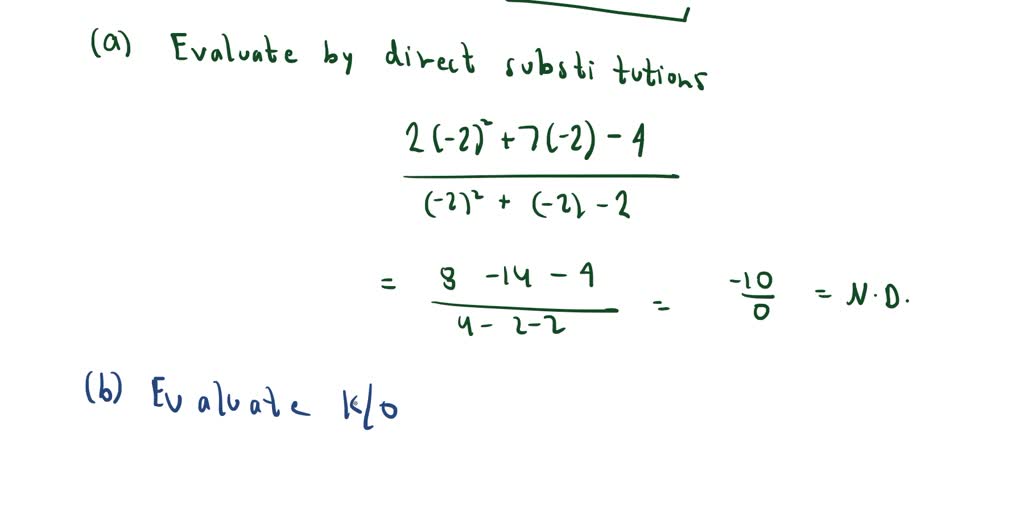 (a) Evaluate by direct substitutions
2(-2)² + 7(-2) - 4
(-2)² + (-2) - 2
= 8 -14 - 4 / 4 - 2 - 2 = -10 / 0 = N.D.
(b) Evaluate K/0